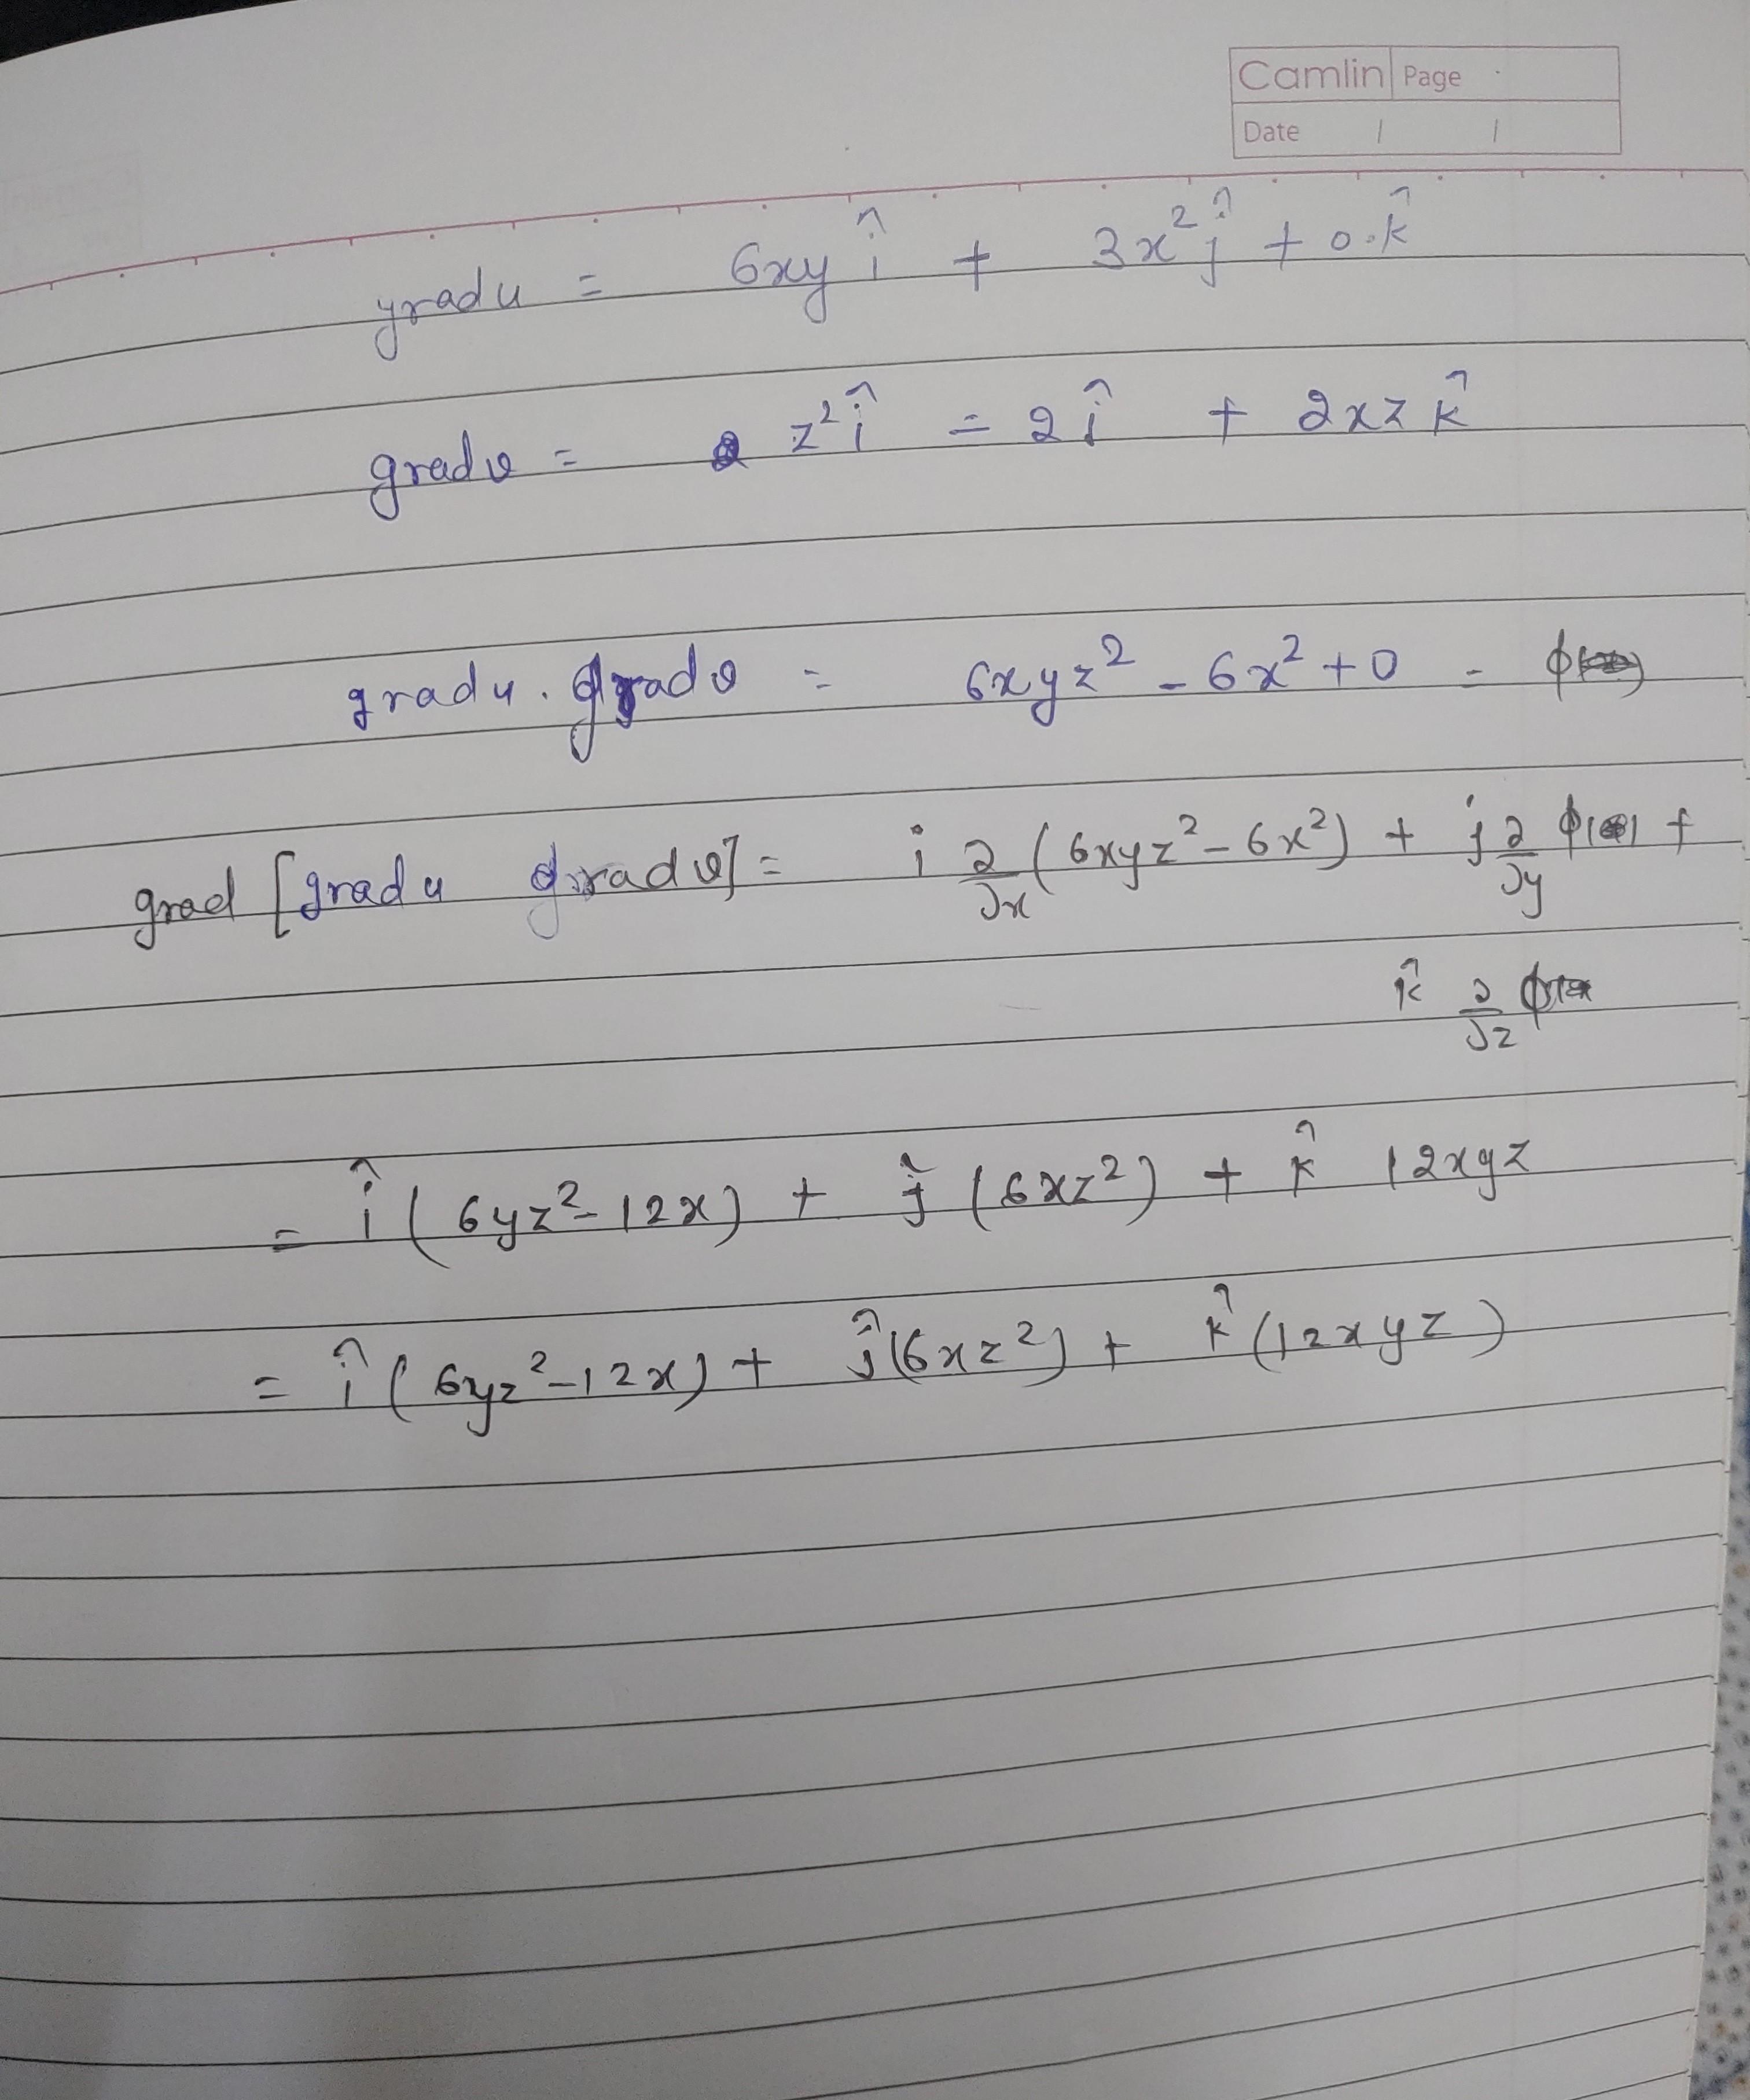 Camlin Page
Date / /
grad u = 6xy î + 3x² ĵ + 0.k̂
grad v = z² î = 2 ĵ + 2xz k̂
grad u . grad v = 6xyz² - 6x² + 0 = ϕ
grad [grad u grad v] = i ∂/∂x (6xyz² - 6x²) + j ∂/∂y ϕ +
k̂ ∂/∂z ϕ
= î (6yz² - 12x) + ĵ (6xz²) + k̂ 12xyz
= î (6yz² - 12x) + ĵ (6xz²) + k̂ (12xyz)